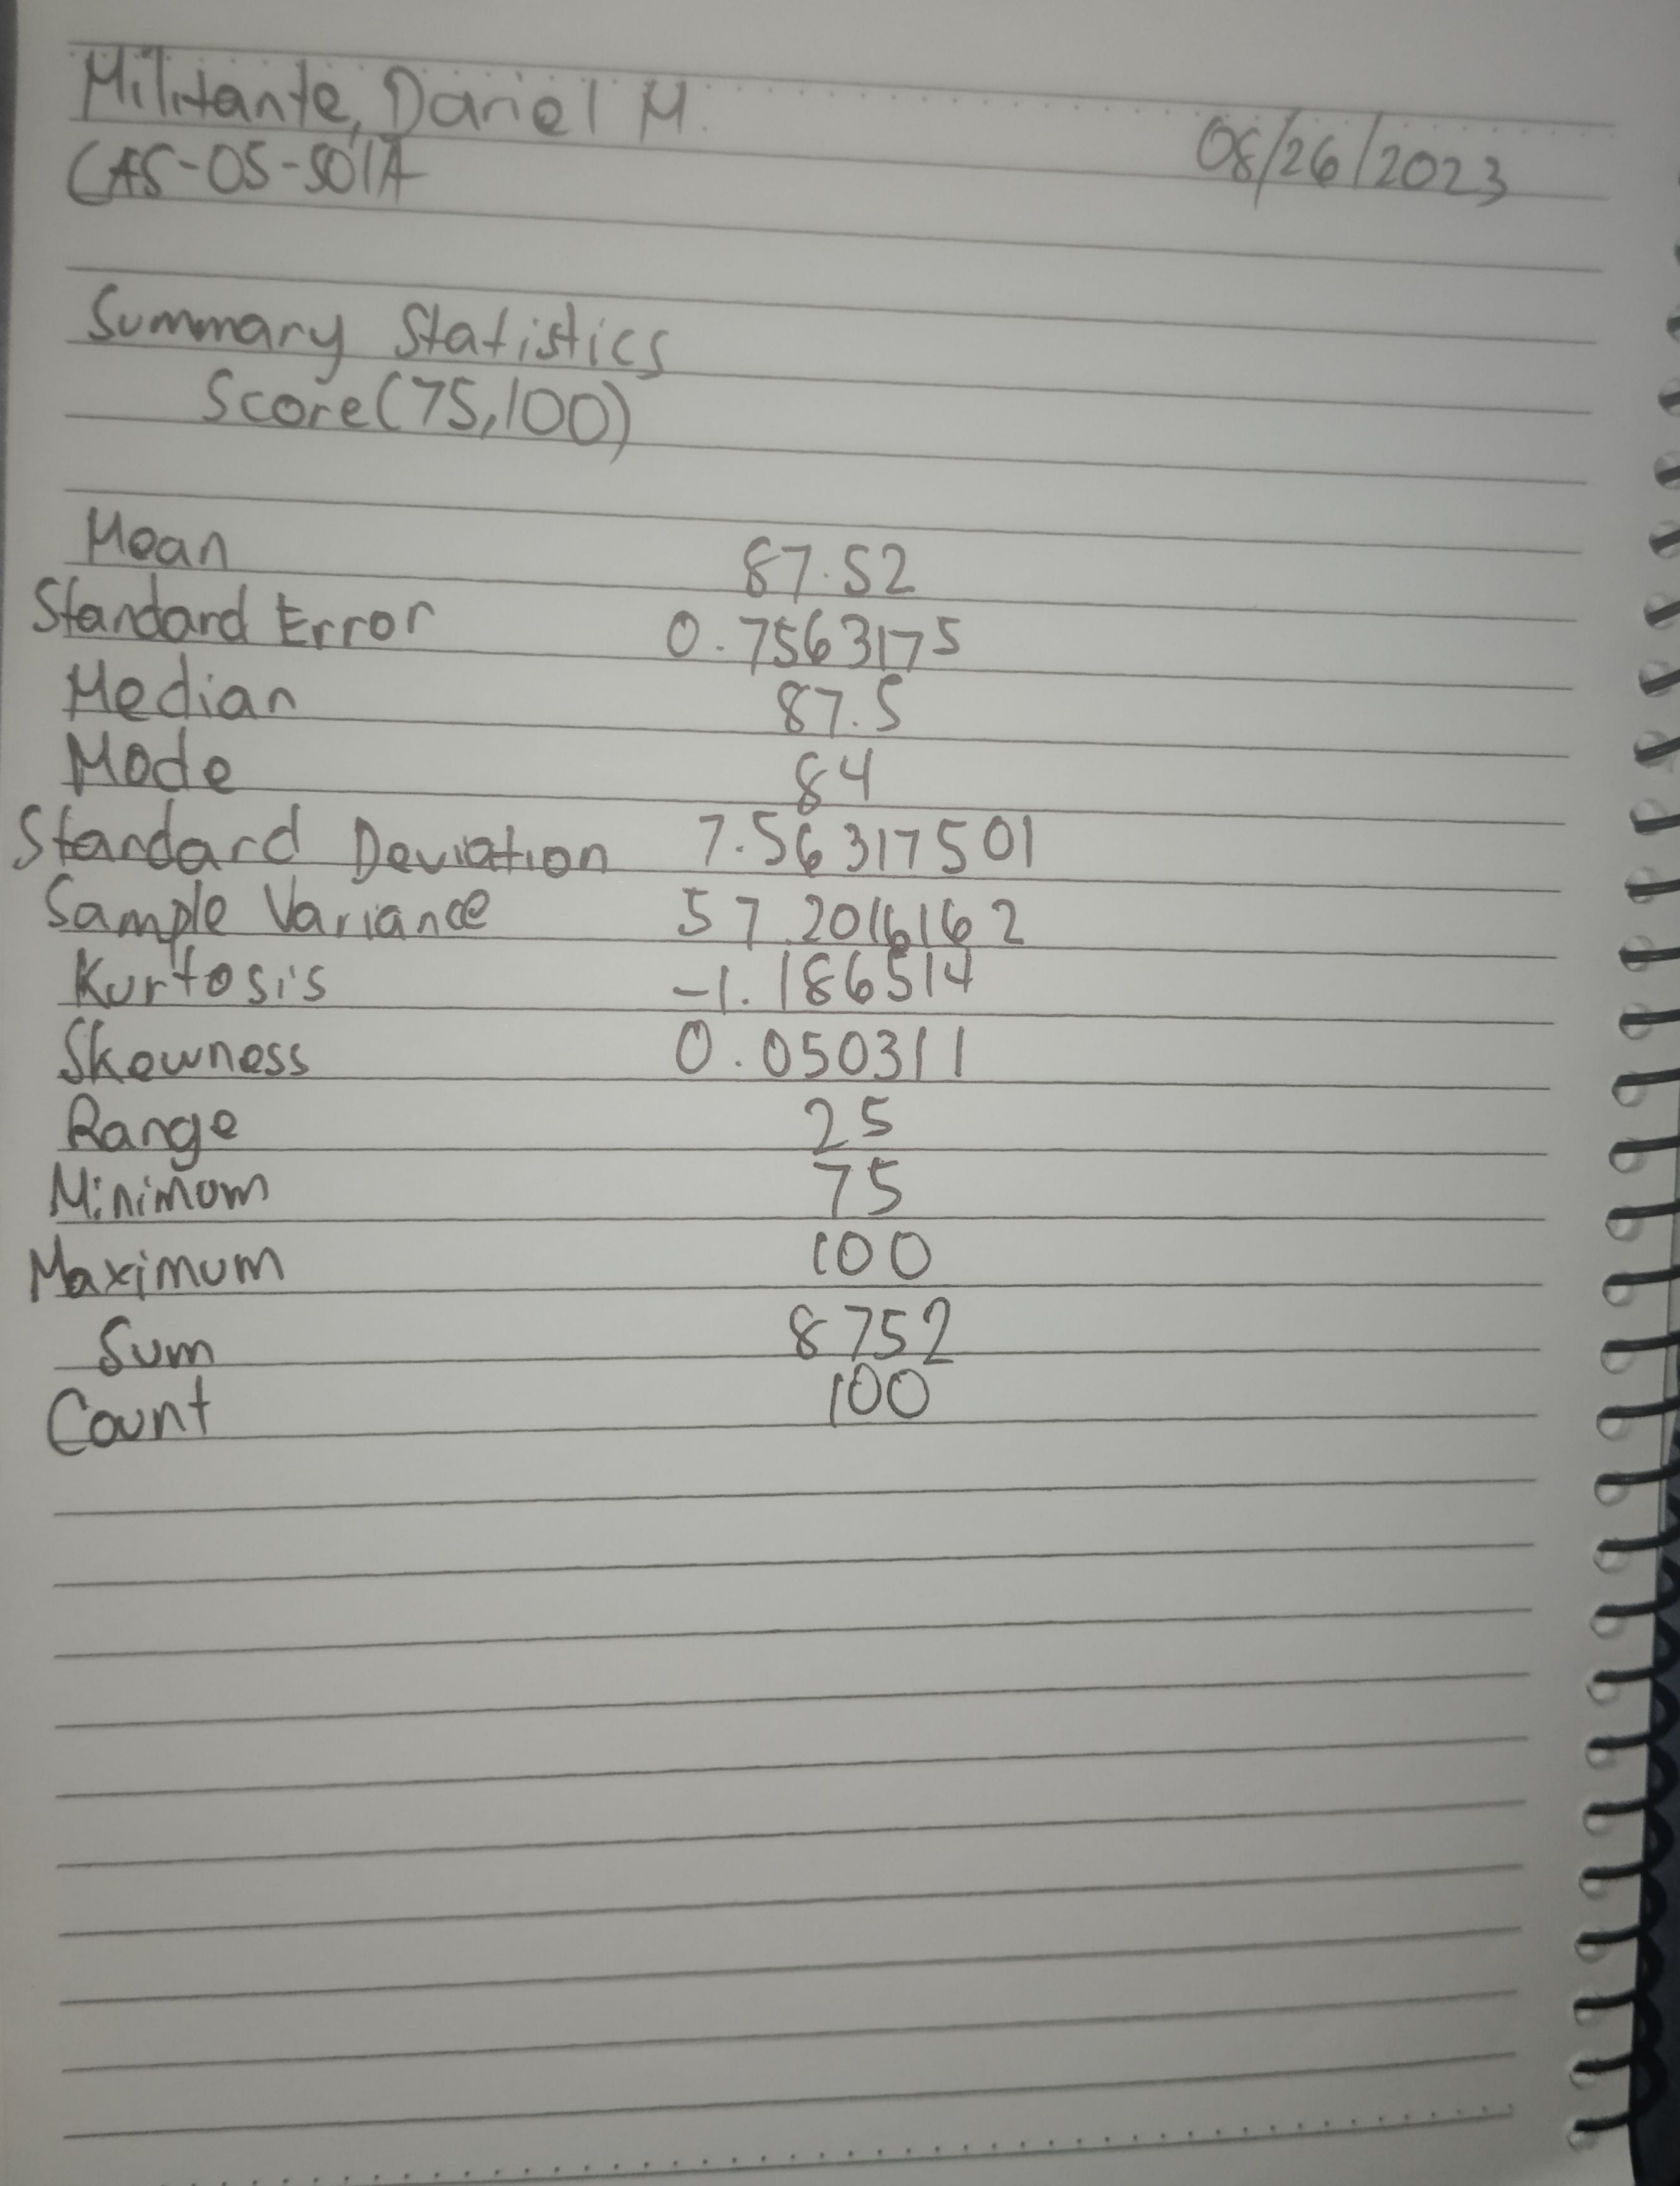 Militante, Dariel M.
08/26/2023
CAS-05-501A
Summary Statistics
Score(75,100)
Mean 87.52
Standard Error 0.7563175
Median 87.5
Mode 84
Standard Deviation 7.56317501
Sample Variance 57.2016162
Kurtosis -1.186514
Skewness 0.050311
Range 25
Minimum 75
Maximum 100
Sum 8752
Count 100